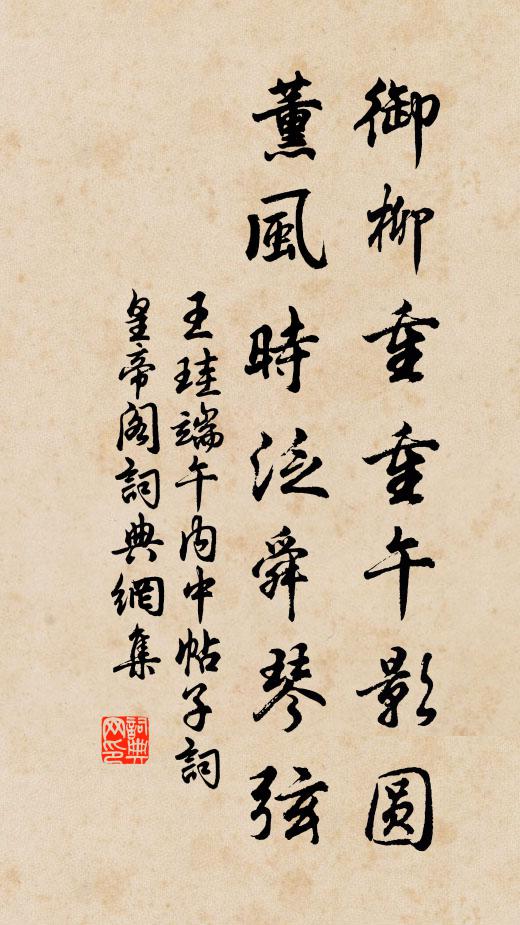 御柳重重午影圆
薰風時泛舜琴弦
王珪端午内中帖子詞
皇帝阁詞典網集
詞典网印